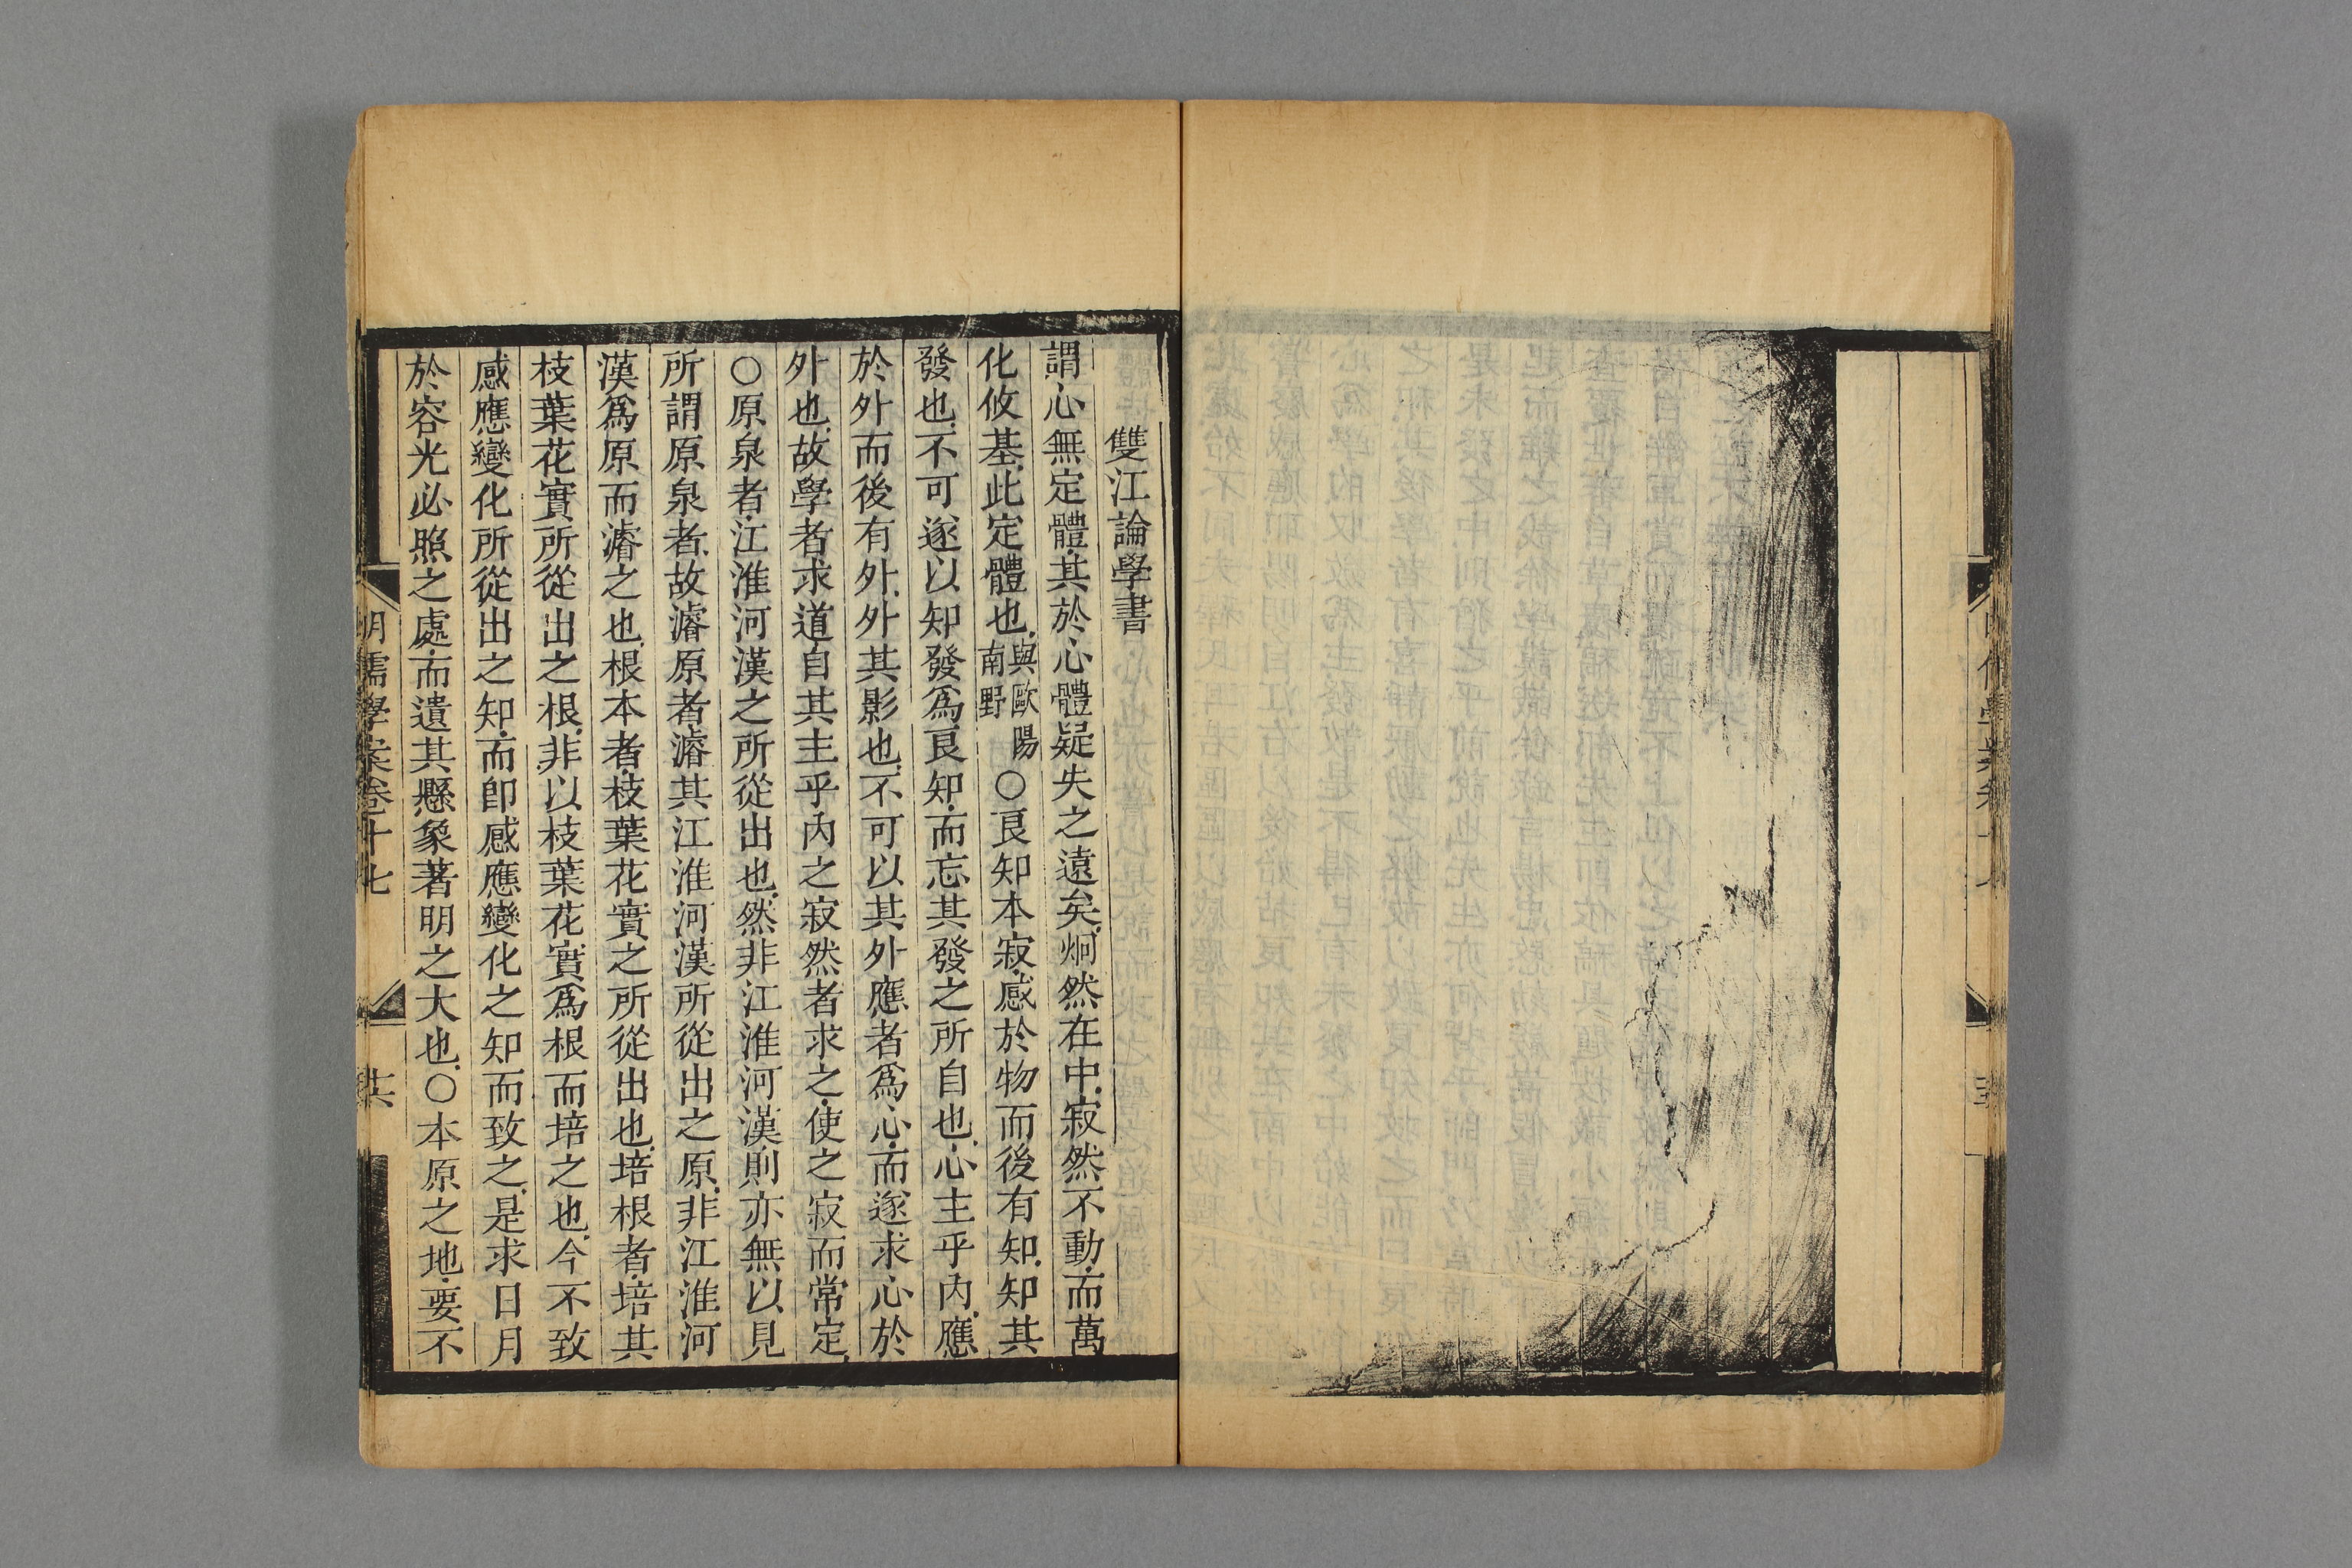 雙江論學書
謂心無定體其於心體疑失之遠矣炯然在中寂然不動而萬
化攸基此定體也與歐陽南野○良知本寂感於物而後有知知其
發也不可遂以知發爲良知而忘其發之所自也心主乎內應
於外而後有外外其影也不可以其外應者爲心而遂求心於
外也故學者求道自其主乎內之寂然者求之使之寂而常定
○原泉者江淮河漢之所從出也然非江淮河漢則亦無以見
所謂原泉者故濬原者濬其江淮河漢所從出之原非江淮河
漢爲原而濬之也根本者枝葉花實之所從出也培根者培其
枝葉花實所從出之根非以枝葉花實爲根而培之也今不致
感應變化所從出之知而卽感應變化之知而致之是求日月
於容光必照之處而遺其懸象著明之大也○本原之地要不
明儒學案卷十七